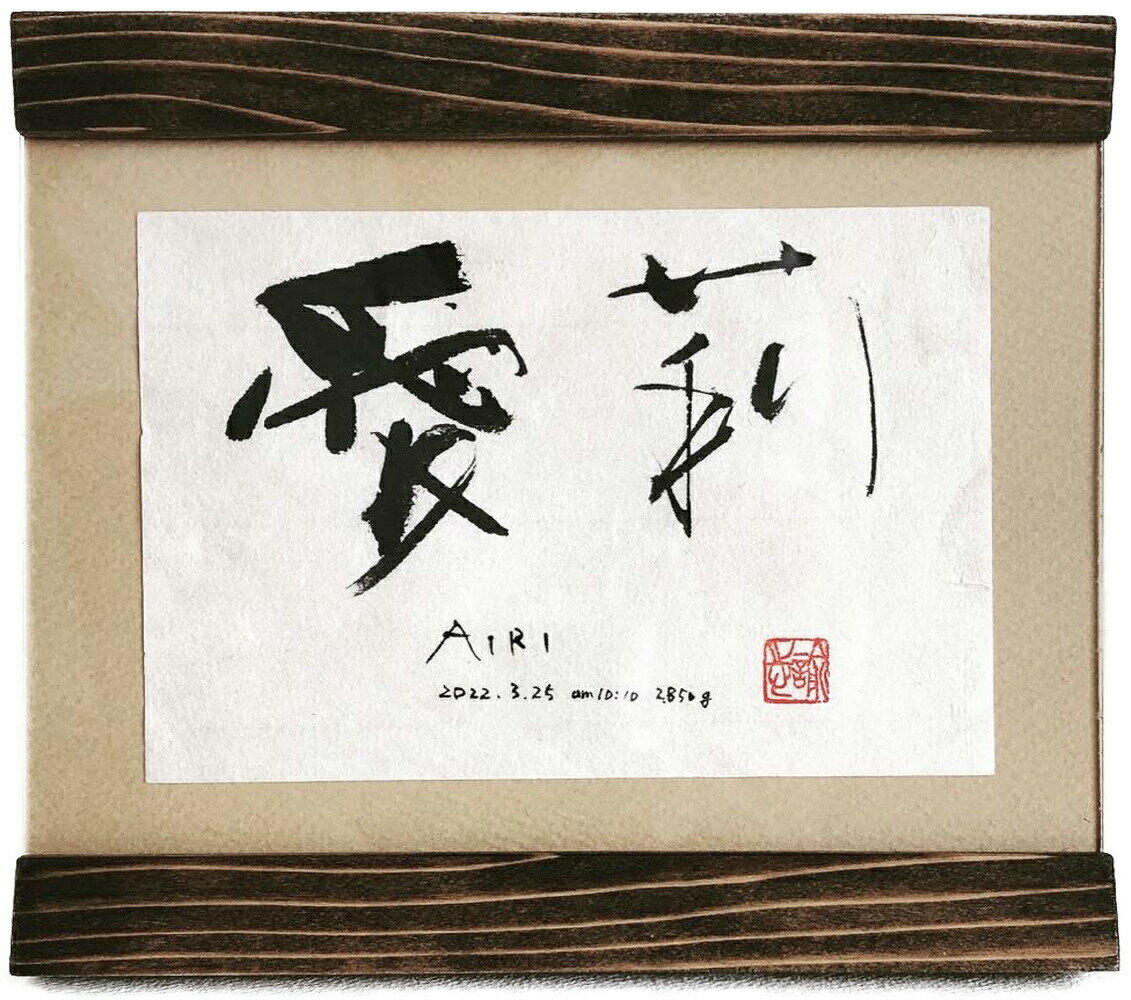 愛莉
AIRI
2022.3.25 am10:10 2850g